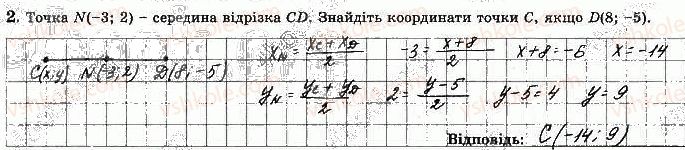 2. Точка N(−3; 2) – середина відрізка CD. Знайдіть координати точки C, якщо D(8; −5).
x_N = (x_C + x_D)/2 −3 = (x+8)/2 x+8 = −6 x = −14
C(x;y) N(−3; 2) D(8; −5)
y_N = (y_C + y_D)/2 2 = (y−5)/2 y−5 = 4 y = 9
Відповідь: C(−14; 9)